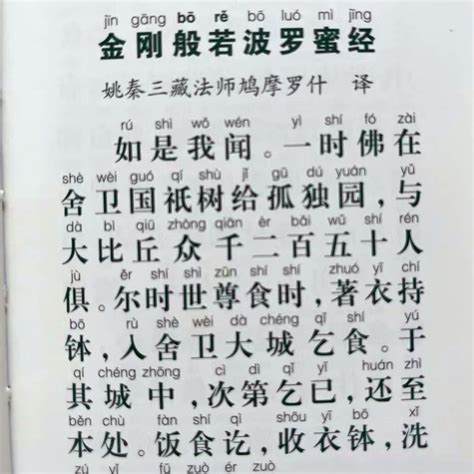 jīn gāng bō rě bō luó mì jīng
金刚般若波罗蜜经
姚秦三藏法师鸠摩罗什 译
rú shì wǒ wén yì shí fó zài
如是我闻。一时佛在
shè wèi guó qí shù jǐ gū dú yuán yǔ
舍卫国祇树给孤独园,与
dà bǐ qiū zhòng qiān èr bǎi wǔ shí rén
大比丘众千二百五十人
jù ěr shí shì zūn shí shí zhuó yī chí
俱。尔时世尊食时,著衣持
bō rù shè wèi dà chéng qǐ shí yú
钵,入舍卫大城乞食。于
qí chéng zhōng cì dì qǐ yǐ huán zhì
其城中,次第乞已,还至
běn chù fàn shí qì shōu yī bō xǐ
本处。饭食讫,收衣钵,洗
zú yǐ fū zuò ér zuò